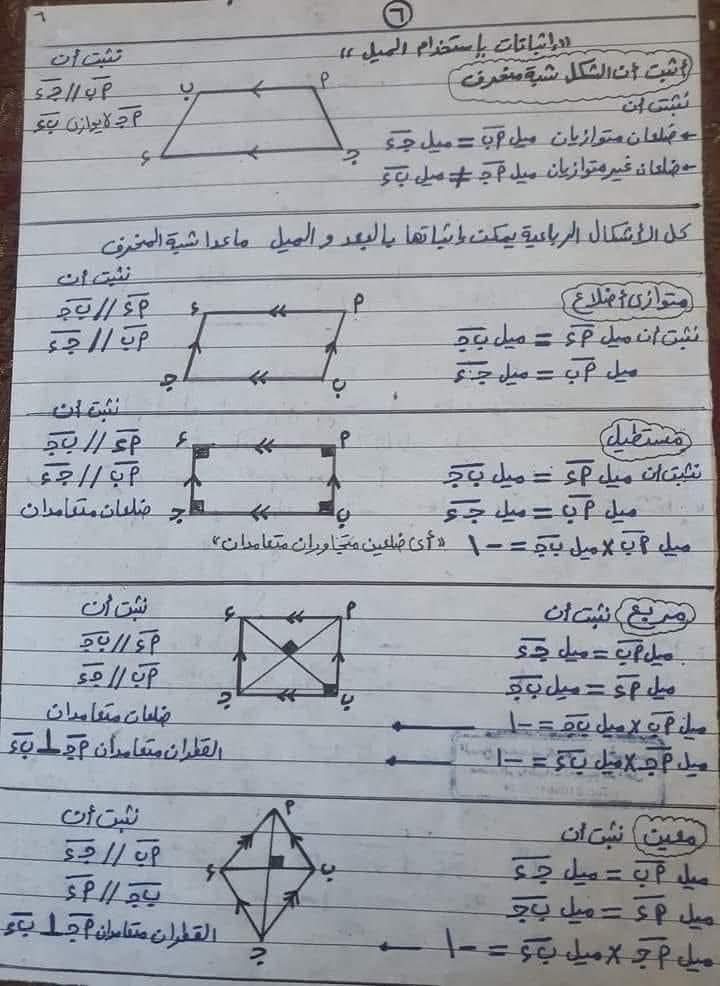 ٦
٦
«إثباتات بإستخدام الميل»
أثبت أن الشكل شبة منحرف
نثبت أن
ضلعان متوازيان ميل أب = ميل جء
ضلعان غير متوازيان ميل أج ≠ ميل بء
نثبت أن
أب // جء
أج لا يوازى بء
أ
ب
ج
ء
كل الأشكال الرباعية يمكن إثباتها بالبعد و الميل ماعدا شبة المنحرف
متوازى أضلاع
نثبت أن ميل أء = ميل بج
ميل أب = ميل جء
نثبت أن
أء // بج
أب // جء
أ
ء
ب
ج
مستطيل
نثبت أن ميل أء = ميل بج
ميل أب = ميل جء
ميل أب × ميل بج = -١ «أى ضلعين متجاوران متعامدان»
نثبت أن
أء // بج
أب // جء
ضلعان متعامدان
أ
ء
ب
ج
مربع نثبت أن
ميل أب = ميل جء
ميل أء = ميل بج
ميل أب × ميل بج = -١
ميل أج × ميل بء = -١
نثبت أن
أء // بج
أب // جء
ضلعان متعامدان
القطران متعامدان أج ⊥ بء
أ
ء
ب
ج
معين نثبت أن
ميل أب = ميل جء
ميل أء = ميل بج
ميل أج × ميل بء = -١
نثبت أن
أب // جء
بج // أء
القطران متعامدان أج ⊥ بء
أ
ء
ب
ج